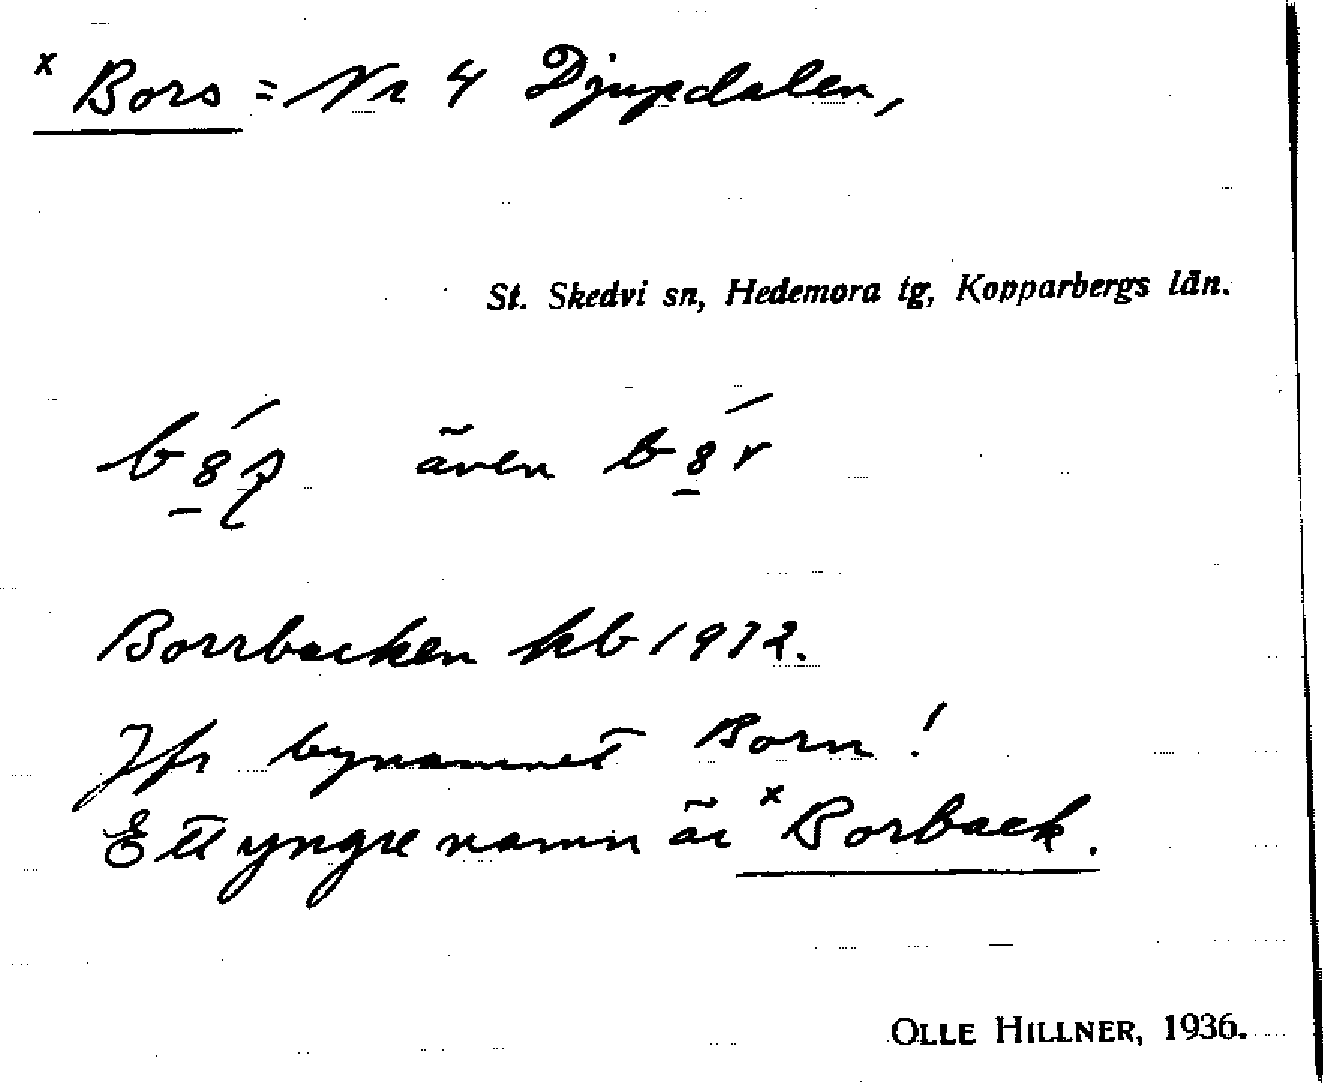 x Bors = Nr 4 Djupdalen,
St. Skedvi sn, Hedemora tg, Kopparbergs län.
även
Borrbacken kb 1972.
Jfr bynamnet Born!
Ett yngre namn är x Borback.
OLLE HILLNER, 1936.